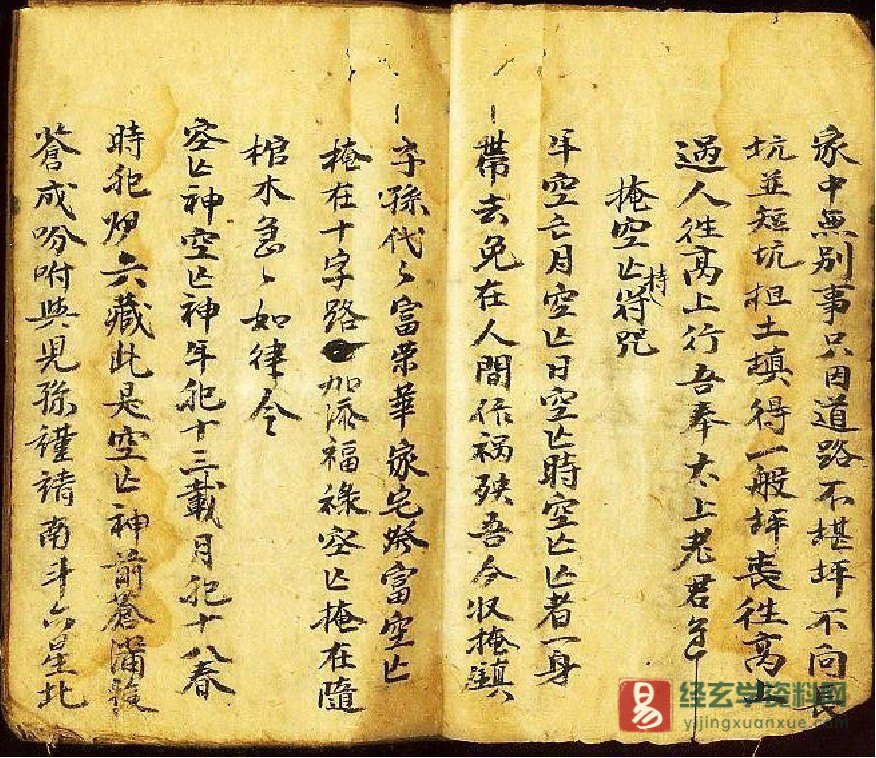 家中無別事只因道路不堪坪不向長
坑並短坑担土填得一般坪喪往高上
過人往高上行吾奉太上老君
掩空亡持符咒
年空亡月空亡日空亡時空亡亡者一身
帶去免在人間作禍殃吾今收掩鎮
子孫代〻富榮華家宅發富空亡
掩在十字路加添福祿空亡掩在隨
棺木急〻如律令
空亡神空亡神年犯十三載月犯十八春
時犯六藏此是空亡神前蒼滿
蒼成吩咐與兒孫謹請南斗六星北
易
经玄学资料网
yijingxuanxue.com